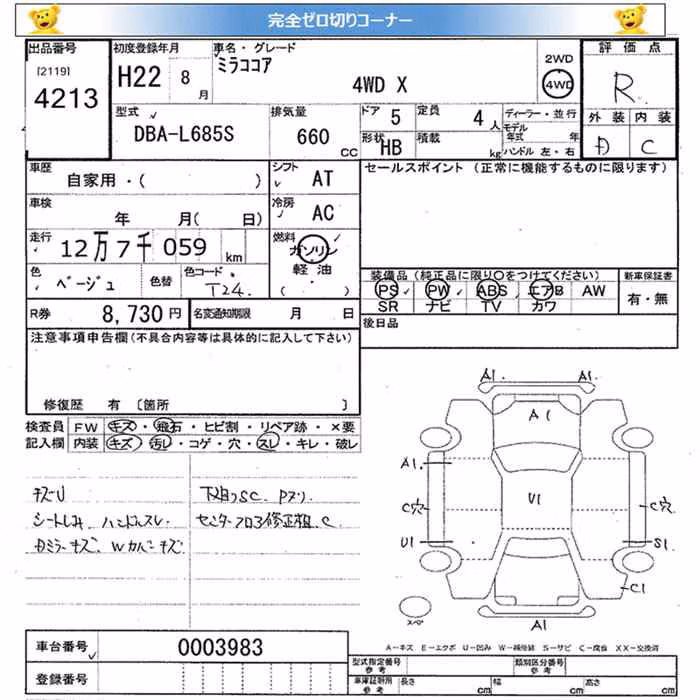 完全ゼロ切りコーナー
出品番号 初度登録年月 車名・グレード 2WD 評価点
[2119]
4213
H22 8 月 ミラココア 4WD X 4WD R
型式 排気量 ドア 5 定員 4人 ディーラー・並行 外装 内装
モデル年式 年
DBA-L685S 660 CC 形状 HB 積載 kg ハンドル 左・右 D C
車歴 シフト セールスポイント (正常に機能するものに限ります)
自家用・( ) AT
車検 冷房
年 月( 日) AC
走行 燃料
12万7千059 km ガソリン
軽油
( )
色 色替 色コード 装備品 (純正品に限り○をつけてください) 新車保証書
ベージュ T24 PS PW ABS エアB AW 有・無
SR ナビ TV カワ
R券 8,730円 名変通知期限 月 日 後日品
注意事項申告欄 (不具合内容等は具体的に記入して下さい)
修復歴 有 [箇所 ]
検査員 FW キズ・飛石・ヒビ割・リペア跡・×要
記入欄 内装 キズ・汚し・コゲ・穴・スレ・キレ・破レ
キズU 下廻りSC.
シートしみ ハンドルスレ
Dミラーキズ、Wカバーキズ
A1. A1.
A1
A1.
C穴 U1 C穴
U1 S1
C1
スペア A1
A-キズ E-エクボ U-凹み W-補修跡 S-サビ C-腐食 XX-交換済
車台番号 0003983
登録番号
型式指定番号 参考 類別区分番号 参考
車庫証明用 参考 長さ cm 幅 cm 高さ cm